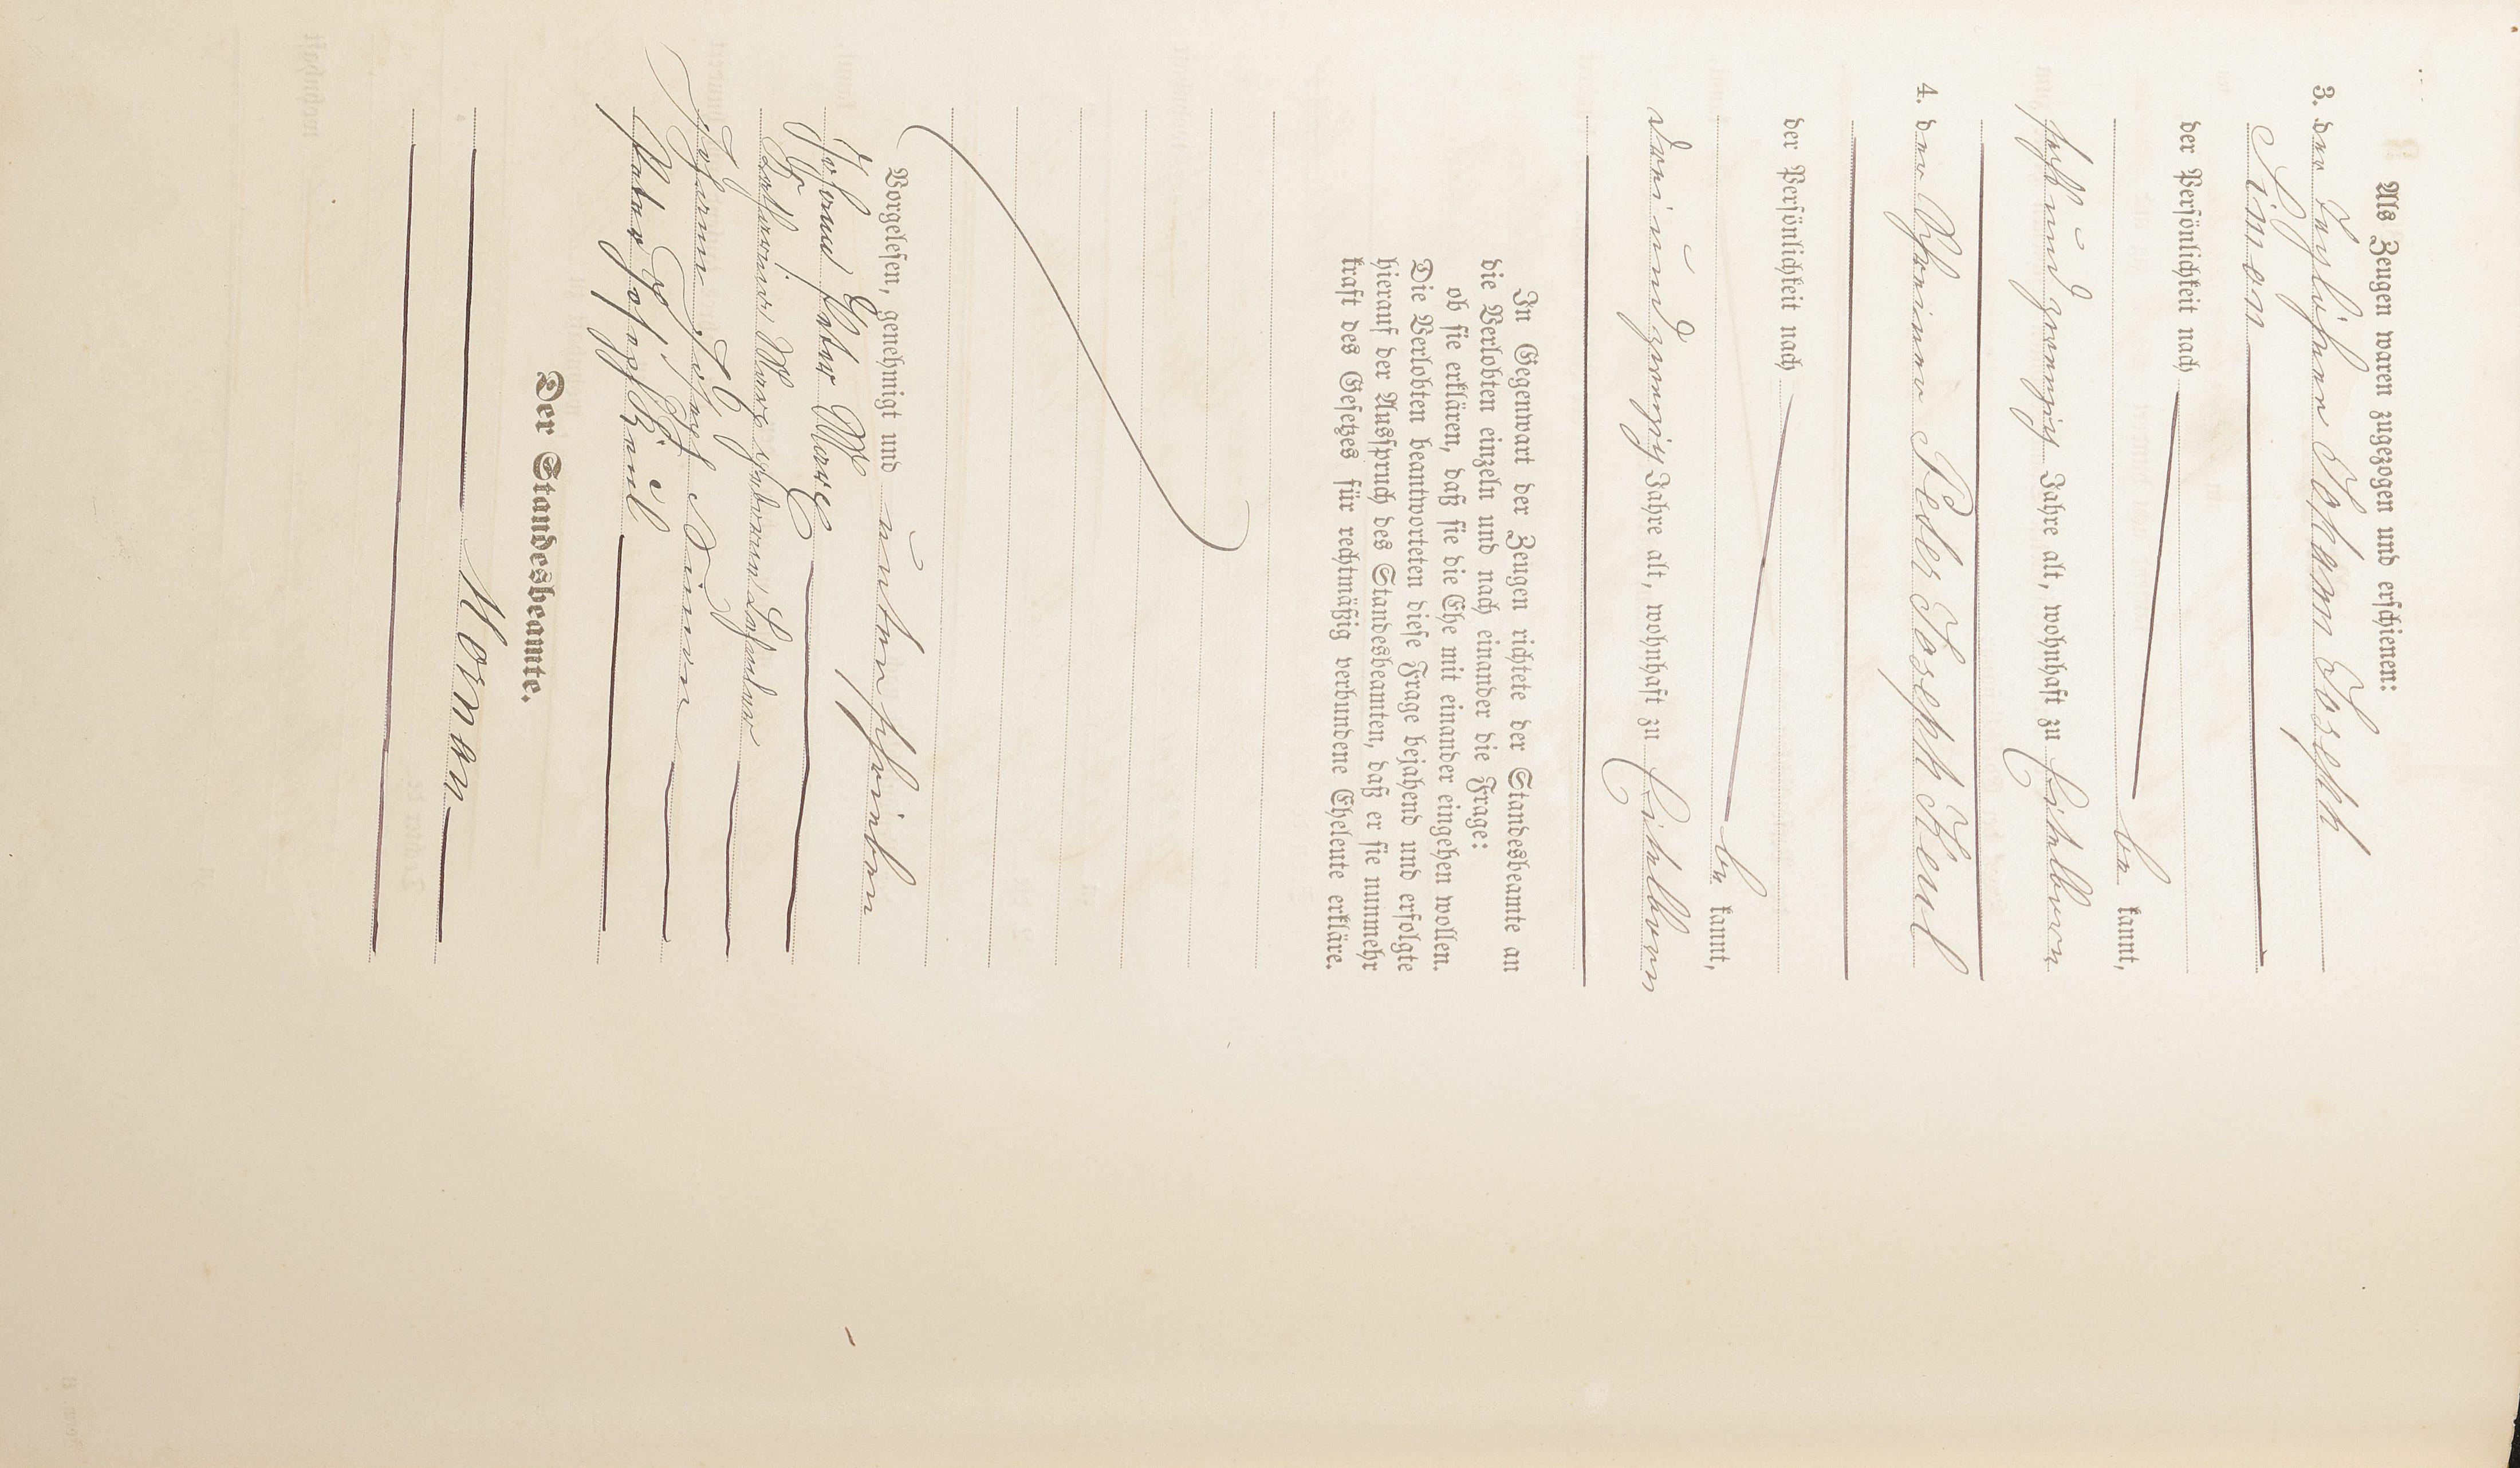 Als Zeugen waren zugezogen und erschienen:
3. der Johann Joseph
Simon
der Persönlichkeit nach
be kannt,
sechsundzwanzig Jahre alt, wohnhaft zu Eitelborn
4. der Schreiner Peter Joseph Keul
der Persönlichkeit nach
be kannt,
dreiundzwanzig Jahre alt, wohnhaft zu Eitelborn
In Gegenwart der Zeugen richtete der Standesbeamte an
die Verlobten einzeln und nach einander die Frage:
ob sie erklären, daß sie die Ehe mit einander eingehen wollen.
Die Verlobten beantworteten diese Frage bejahend und erfolgte
hierauf der Ausspruch des Standesbeamten, daß er sie nunmehr
kraft des Gesetzes für rechtmäßig verbundene Eheleute erkläre.
Vorgelesen, genehmigt und unterschrieben
Johann Peter Marx
Katharina Marx geborene
Johann Josef Simon
Peter Josef Keul
Der Standesbeamte.